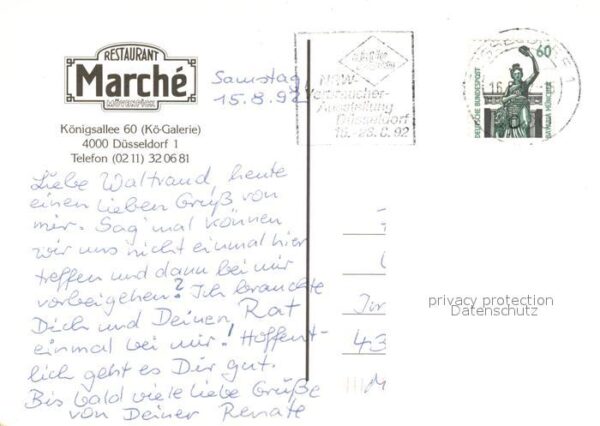 RESTAURANT
Marché
MÖVENPICK
Königsallee 60 (Kö-Galerie)
4000 Düsseldorf 1
Telefon (02 11) 32 06 81
Samstag
15.8.92
Liebe Waltraud, heute
einen lieben Gruß von
mir. Sag' mal können
wir uns nicht einmal hier
treffen und dann bei mir
vorbeigehen? Ich brauchte
Dich und Deinen Rat
einmal bei mir! Hoffent-
lich geht es Dir gut.
Bis bald viele liebe Grüße
von Deiner Renate
NRW-
Verbraucher-
Ausstellung
Düsseldorf
-23.8.92
60
DEUTSCHE BUNDESPOST
BAVARIA MÜNCHEN
16
43
privacy protection
Datenschutz